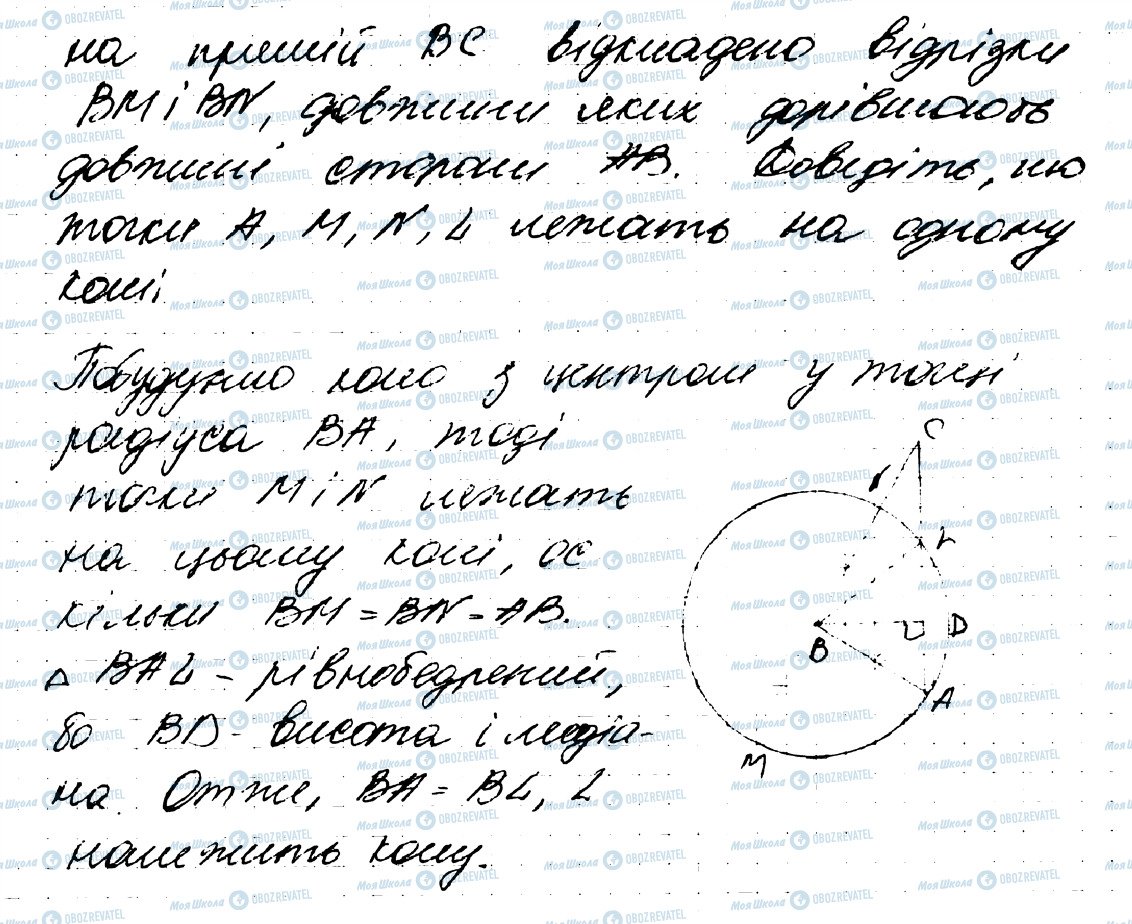 на прямій BC відкладено відрізки
BM і BN, довжини яких дорівнюють
довжині сторони AB. Доведіть, що
точки A, M, N, L лежать на одному
колі
Побудуємо коло з центром у точці
радіуса BA, тоді
точки M і N лежать
на цьому колі, ос
кільки BM = BN = AB.
△ BAL - рівнобедрений,
бо BD - висота і медіа-
на. Отже, BA = BL, L
належить колу.
C
L
D
B
A
M